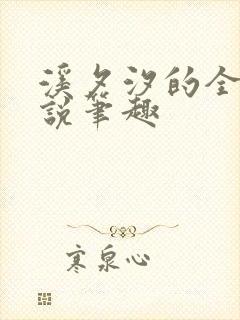 溪夕汐的全
說笔趣
寒泉心